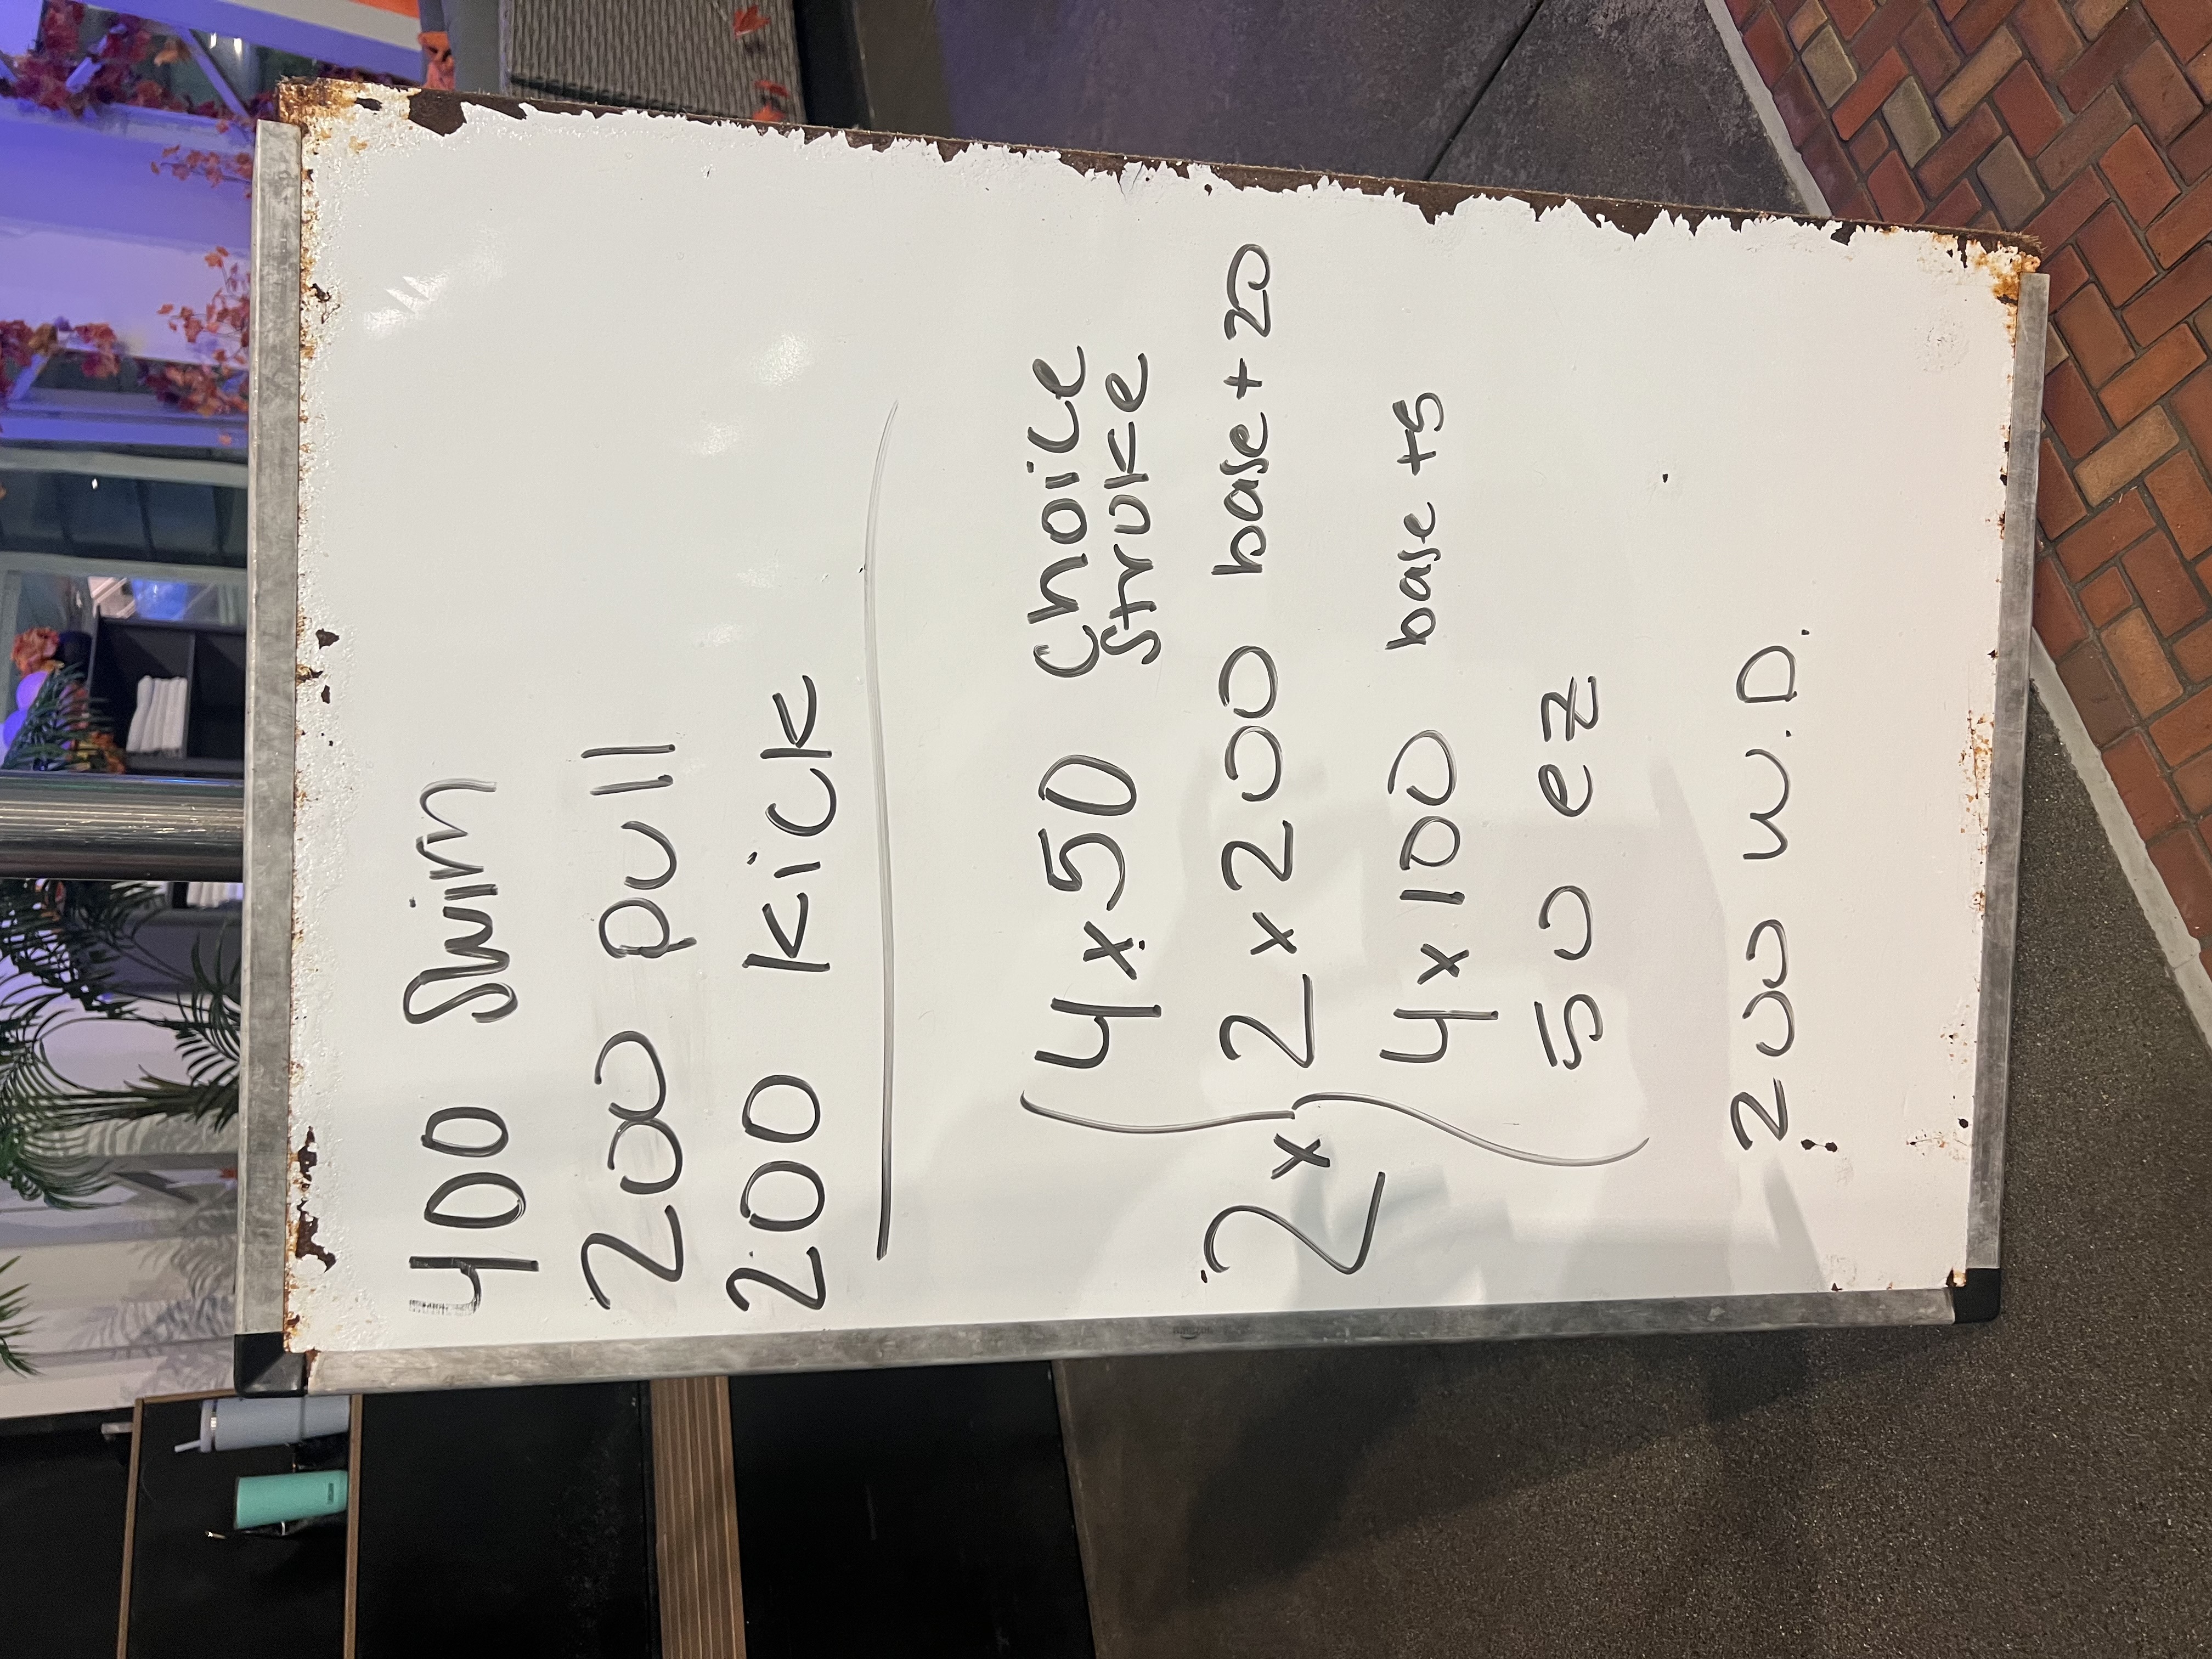 400 Swim
200 pull
200 kick
4x50 Choice
Stroke
2x 2x200 base+20
4x100 base +5
50 ez
200 W.D.